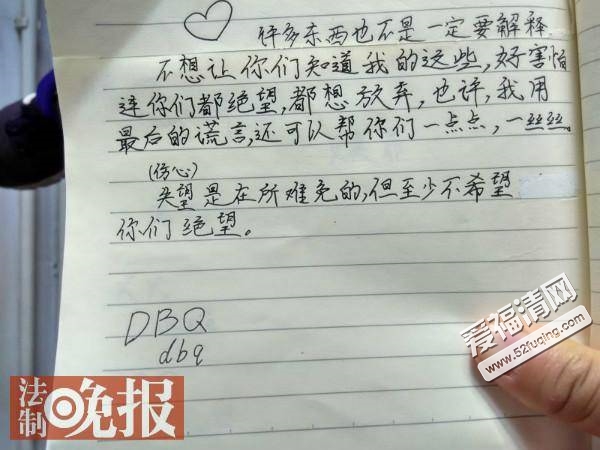 许多东西也不是一定要解释
不想让你们知道我的这些,好害怕
连你们都绝望,都想放弃,也许,我用
最后的谎言,还可以帮你们一点点,一丝丝。
(伤心)
失望是在所难免的,但至少不希望
你们绝望。
DBQ
dbq
爱福清网
www.52fuqing.com
法制晚报